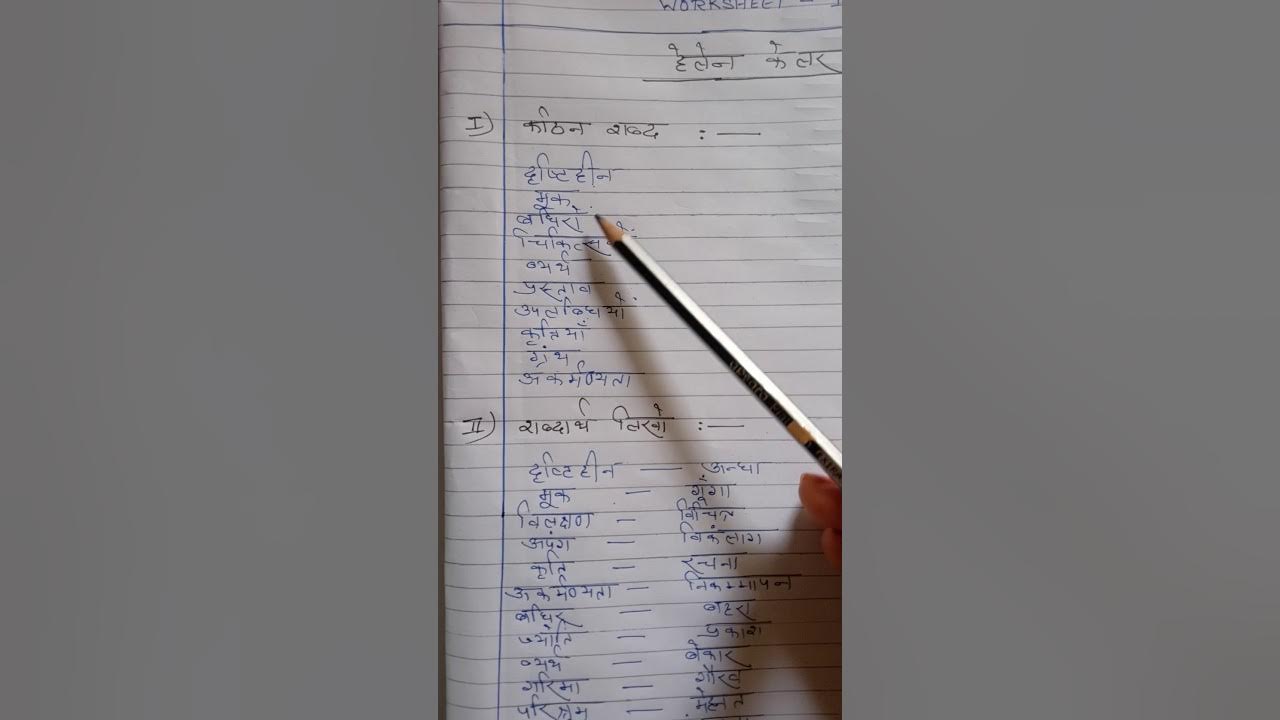 WORKSHEET -
हेलेन केलर
I) कठिन शब्द :—
दृष्टिहीन
मूक
बधिरों
चिकित्सकों
व्यर्थ
प्रस्ताव
उपलब्धियों
कृतियाँ
ग्रंथ
अकर्मण्यता
II) शब्दार्थ लिखो :—
दृष्टिहीन — अन्धा
मूक — गूंगा
विलक्षण — विचित्र
अपंग — विकलांग
कृति — रचना
अकर्मण्यता — निकम्मापन
बधिर — बहरा
ज्योति — प्रकाश
व्यर्थ — बेकार
गरिमा — गौरव
परिश्रम — मेहनत